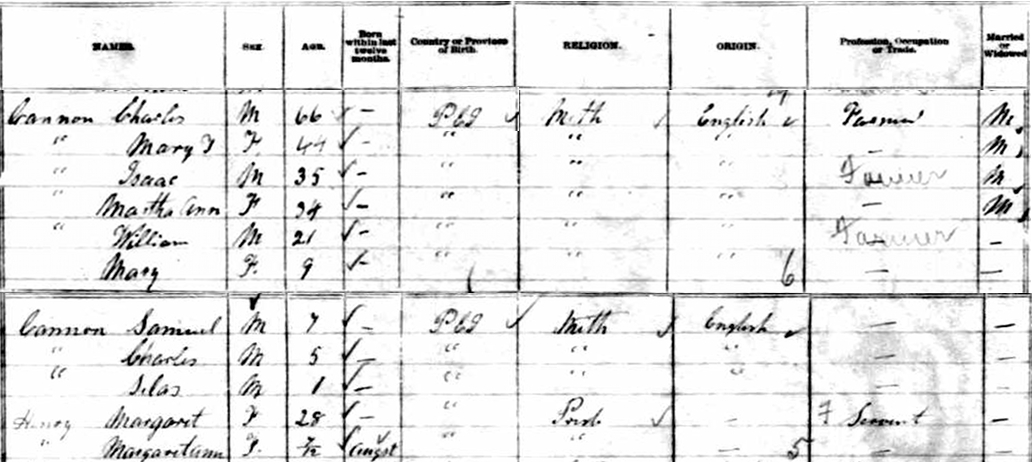 NAMES. SEX. AGE. Born within last twelve months. Country or Province of Birth. RELIGION. ORIGIN. Profession, Occupation or Trade. Married or Widowed
Cannon Charles M 66 ✓ – PEI ✓ Meth ✓ English ✓ Farmer M
" Mary F 44 ✓ – " " " – M
" Isaac M 35 ✓ – " " " Farmer M
" Martha Ann F 34 ✓ – " " " – M
" William M 21 ✓ – " " " Farmer –
Mary F. 9 ✓ – " " " 6 – –
Cannon Samuel M 7 ✓ – PEI ✓ Meth ✓ English ✓ – –
" Charles M 5 ✓ – " " " – –
" Silas M 1 ✓ – " " " – –
Henry Margaret F 28 ✓ – " Presb ✓ – F Servent –
" Margaretann F. ✓ Augst " " – 5 –